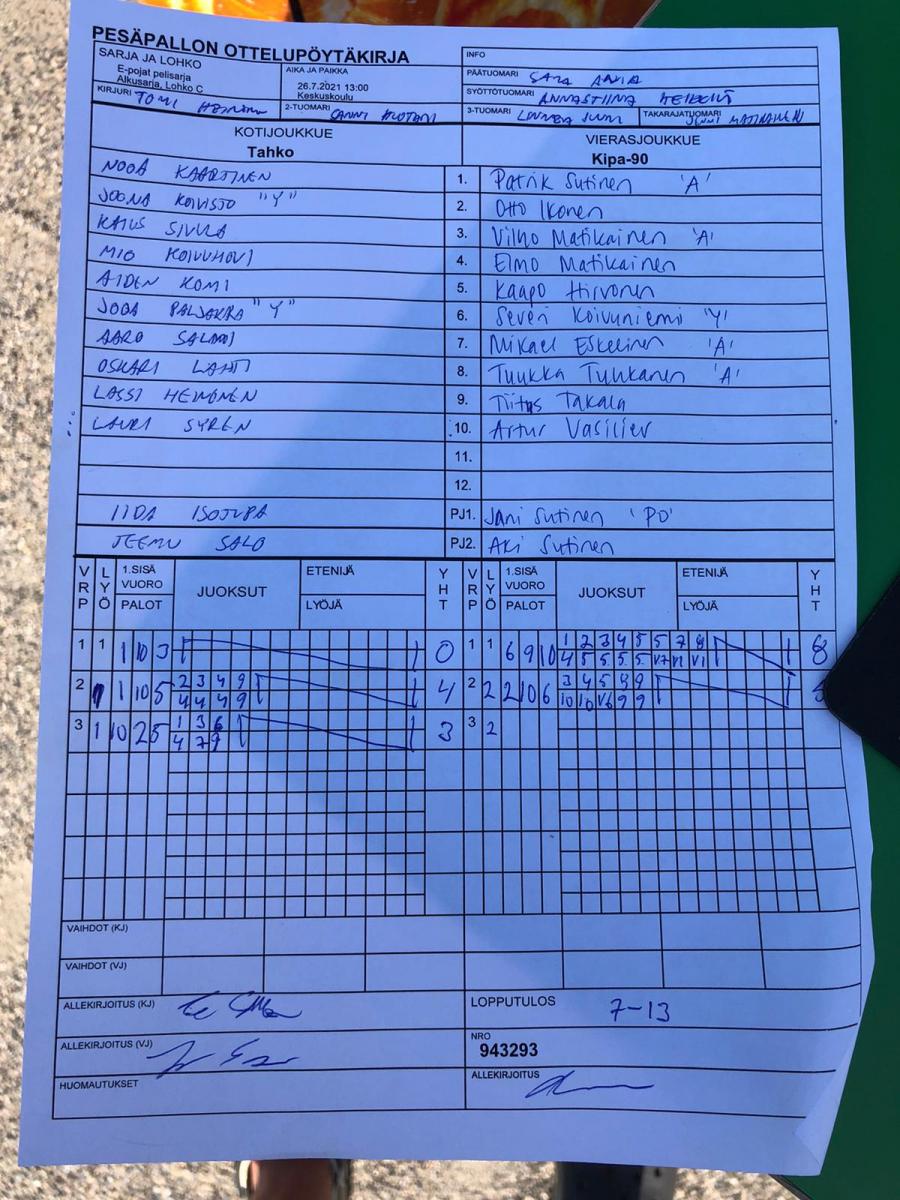 PESÄPALLON OTTELUPÖYTÄKIRJA
SARJA JA LOHKO
E-pojat pelisarja
Alkusarja, Lohko C
AIKA JA PAIKKA
26.7.2021 13:00
Keskuskoulu
INFO
PÄÄTUOMARI SARA
SYÖTTÖTUOMARI ANNASTIINA
KIRJURI TOMI
2-TUOMARI
3-TUOMARI LINNEA
TAKARAJATUOMARI
KOTIJOUKKUE
Tahko
VIERASJOUKKUE
Kipa-90
NOOA KAARTINEN 1. Patrik Sutinen 'A'
JOONA KOIVISTO "Y" 2. Otto Ikonen
KAIUS SIVULA 3. Vilho Matikainen 'A'
MIO KOIVUHOVI 4. Elmo Matikainen
AIDEN KOMI 5. Kaapo Hirvonen
JOOA PALJAKKA "Y" 6. Severi Koivuniemi 'Y'
AARO SALMI 7. Mikael Eskelinen 'A'
OSKARI LAHTI 8. Tuukka Tuhkanen 'A'
LASSI HEINONEN 9. Tiitus Takala
LAURI SYREN 10. Artur Vasiliev
11.
12.
IIDA ISOJUPA PJ1. Jani Sutinen 'PD'
JEEMU SALO PJ2. Aki Sutinen
VRP LYÖ 1.SISÄ VUORO PALOT JUOKSUT ETENIJÄ LYÖJÄ YHT VRP LYÖ 1.SISÄ VUORO PALOT JUOKSUT ETENIJÄ LYÖJÄ YHT
1 1 1 10 3 0 1 1 6 9 10 1 2 3 4 5 5 7 8 8
4 5 5 5 5 V7 V1 V1
2 1 1 10 5 2 3 4 9 4 2 2 2 10 6 3 4 5 8 9
4 4 4 9 10 10 V6 9 9
3 1 10 2 5 1 3 6 3 3 2
4 7 9
VAIHDOT (KJ)
VAIHDOT (VJ)
ALLEKIRJOITUS (KJ)
LOPPUTULOS 7-13
ALLEKIRJOITUS (VJ)
NRO
943293
HUOMAUTUKSET
ALLEKIRJOITUS